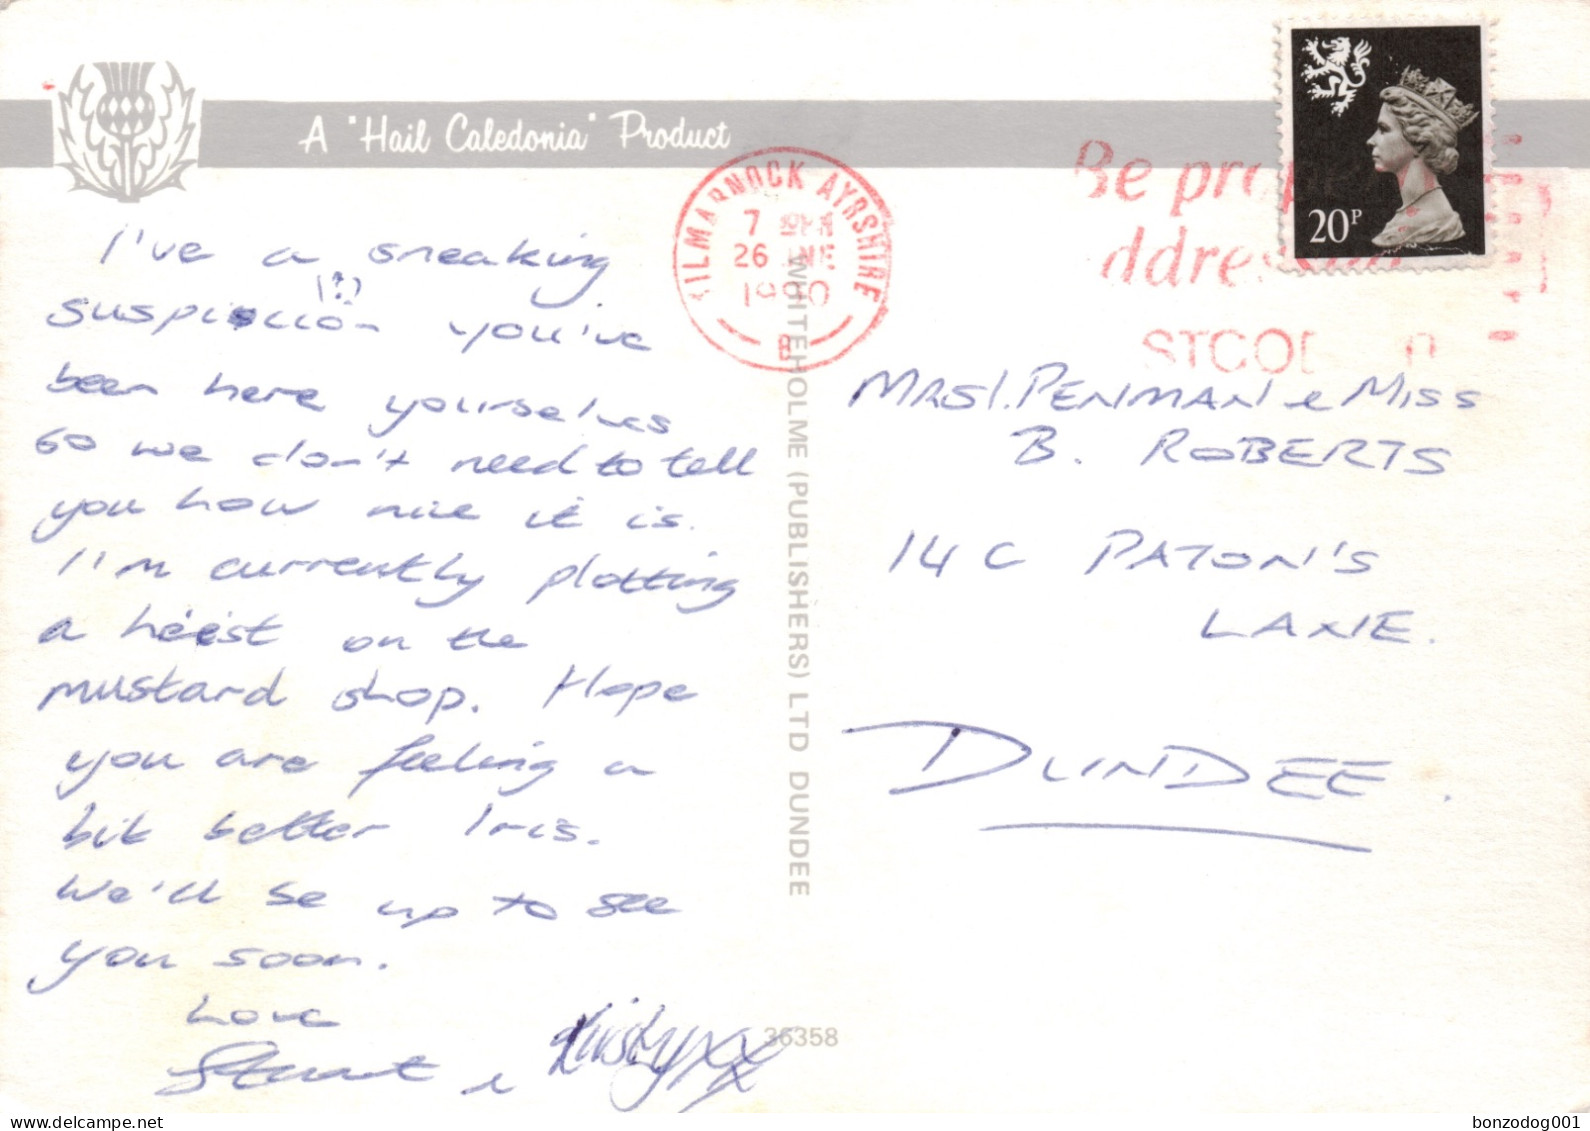 A "Hail Caledonia" Product
I've a sneaking
(?)
suspicion you've
been here yourselves
so we don't need to tell
you how nice it is.
I'm currently plotting
a heist on the
mustard shop. Hope
you are feeling a
bit better Iris.
We'll be up to see
you soon.
Love
Stuart & Kirsty xx
KILMARNOCK AYRSHIRE
7
26
1990
B
Be
20P
MRS I. PENMAN & MISS
B. ROBERTS
14 C PATON'S
LANE.
DUNDEE.
WHITEHOLME (PUBLISHERS) LTD DUNDEE
36358
bonzodog001